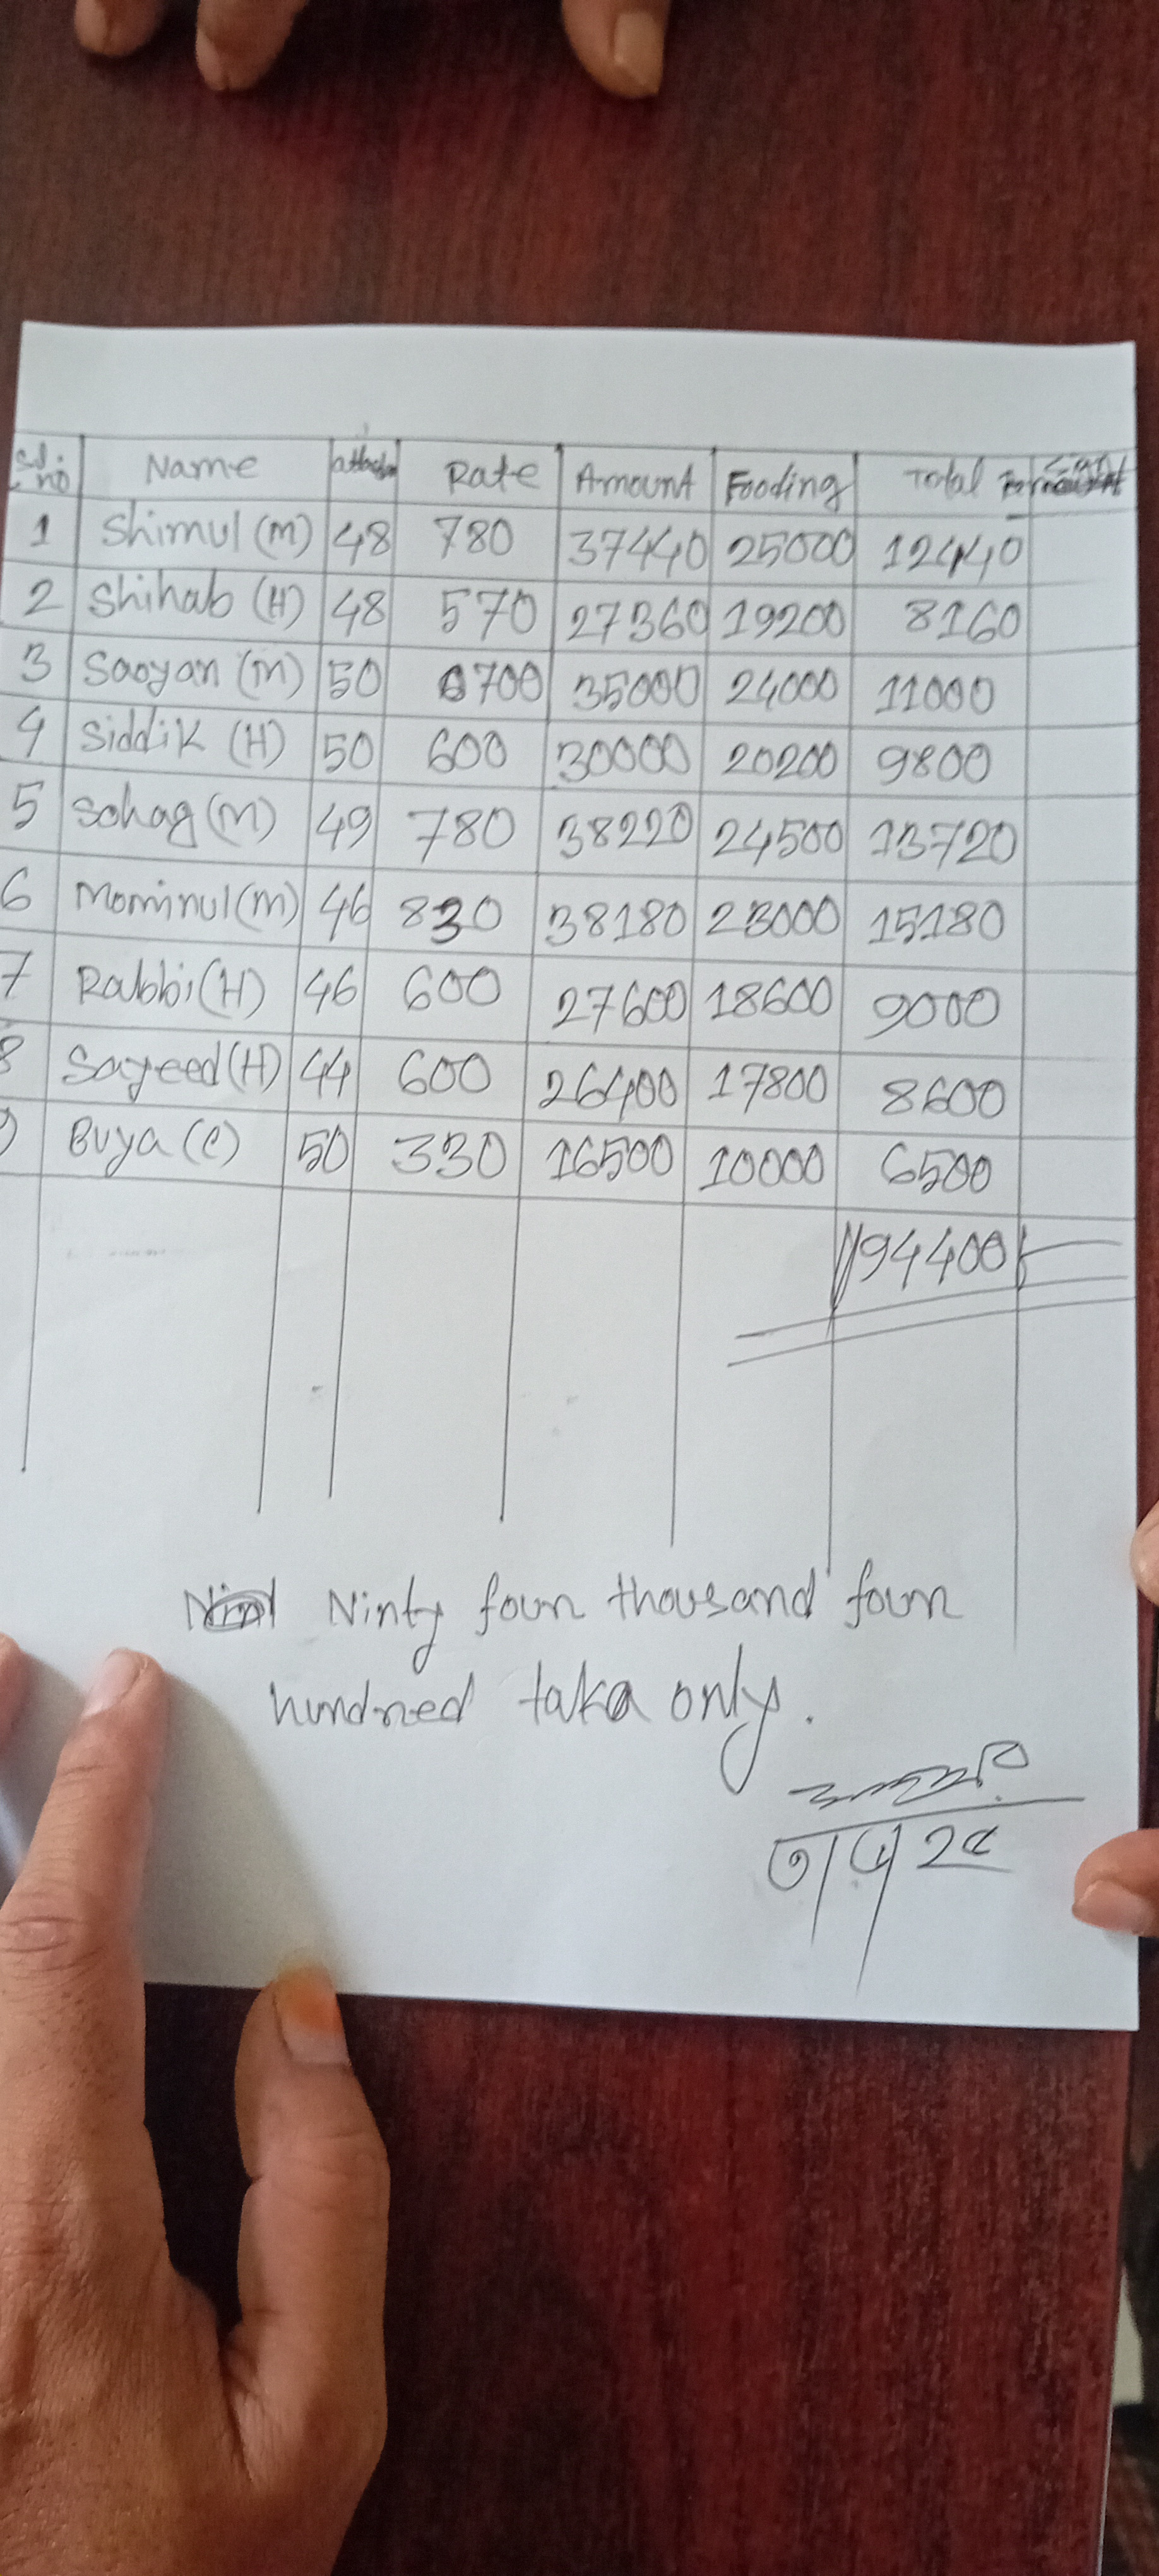 Sl. no Name Rate Amount Fooding Total
1 Shimul (m) 48 780 37440 25000 12440
2 Shihab (H) 48 570 27360 19200 8160
3 Saoyan (m) 50 700 35000 24000 11000
4 Siddik (H) 50 600 30000 20200 9800
5 Sohag (m) 49 780 38220 24500 13720
6 Mominul (m) 46 830 38180 23000 15180
7 Rabbi (H) 46 600 27600 18600 9000
8 Sayeed (H) 44 600 26400 17800 8600
Buya (c) 50 330 16500 10000 6500
94400
Ninty four thousand four
hundred taka only.